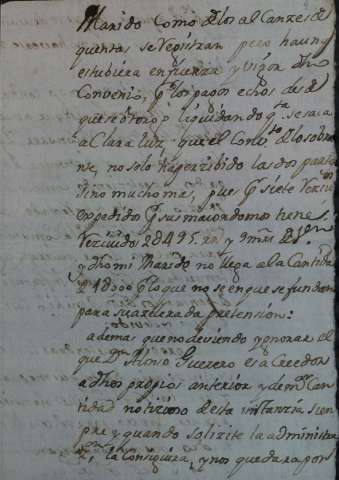 Marido como de los alCanzes de
quentas se Registran pero haunq
estubiera en fuerza y vigor dho
Convenio, por los pagos echos desde
que se otorgo y liquidando qta se saca
a Clara luz, que el Convto de los obra
nse, no solo ha perzibido las dos partes
sino mucho mas, pues por siete Rezivos
expedidos por sus maiordomos tiene
Rezivido 28495 rs y 9 mrs
y dho mi Marido no llega a la Cantidad
18000 por lo que no se en que se fundan
para su azelerada pretension:
ademas que no deviendo ygnorar el
que Dn Alonso Guerrero es aCreedor
a dhos propios anterior y de mor Can
tidad notizioso de esta instanzia siem
pre y quando solizite la administra
la Consiguira, y nos quedara por